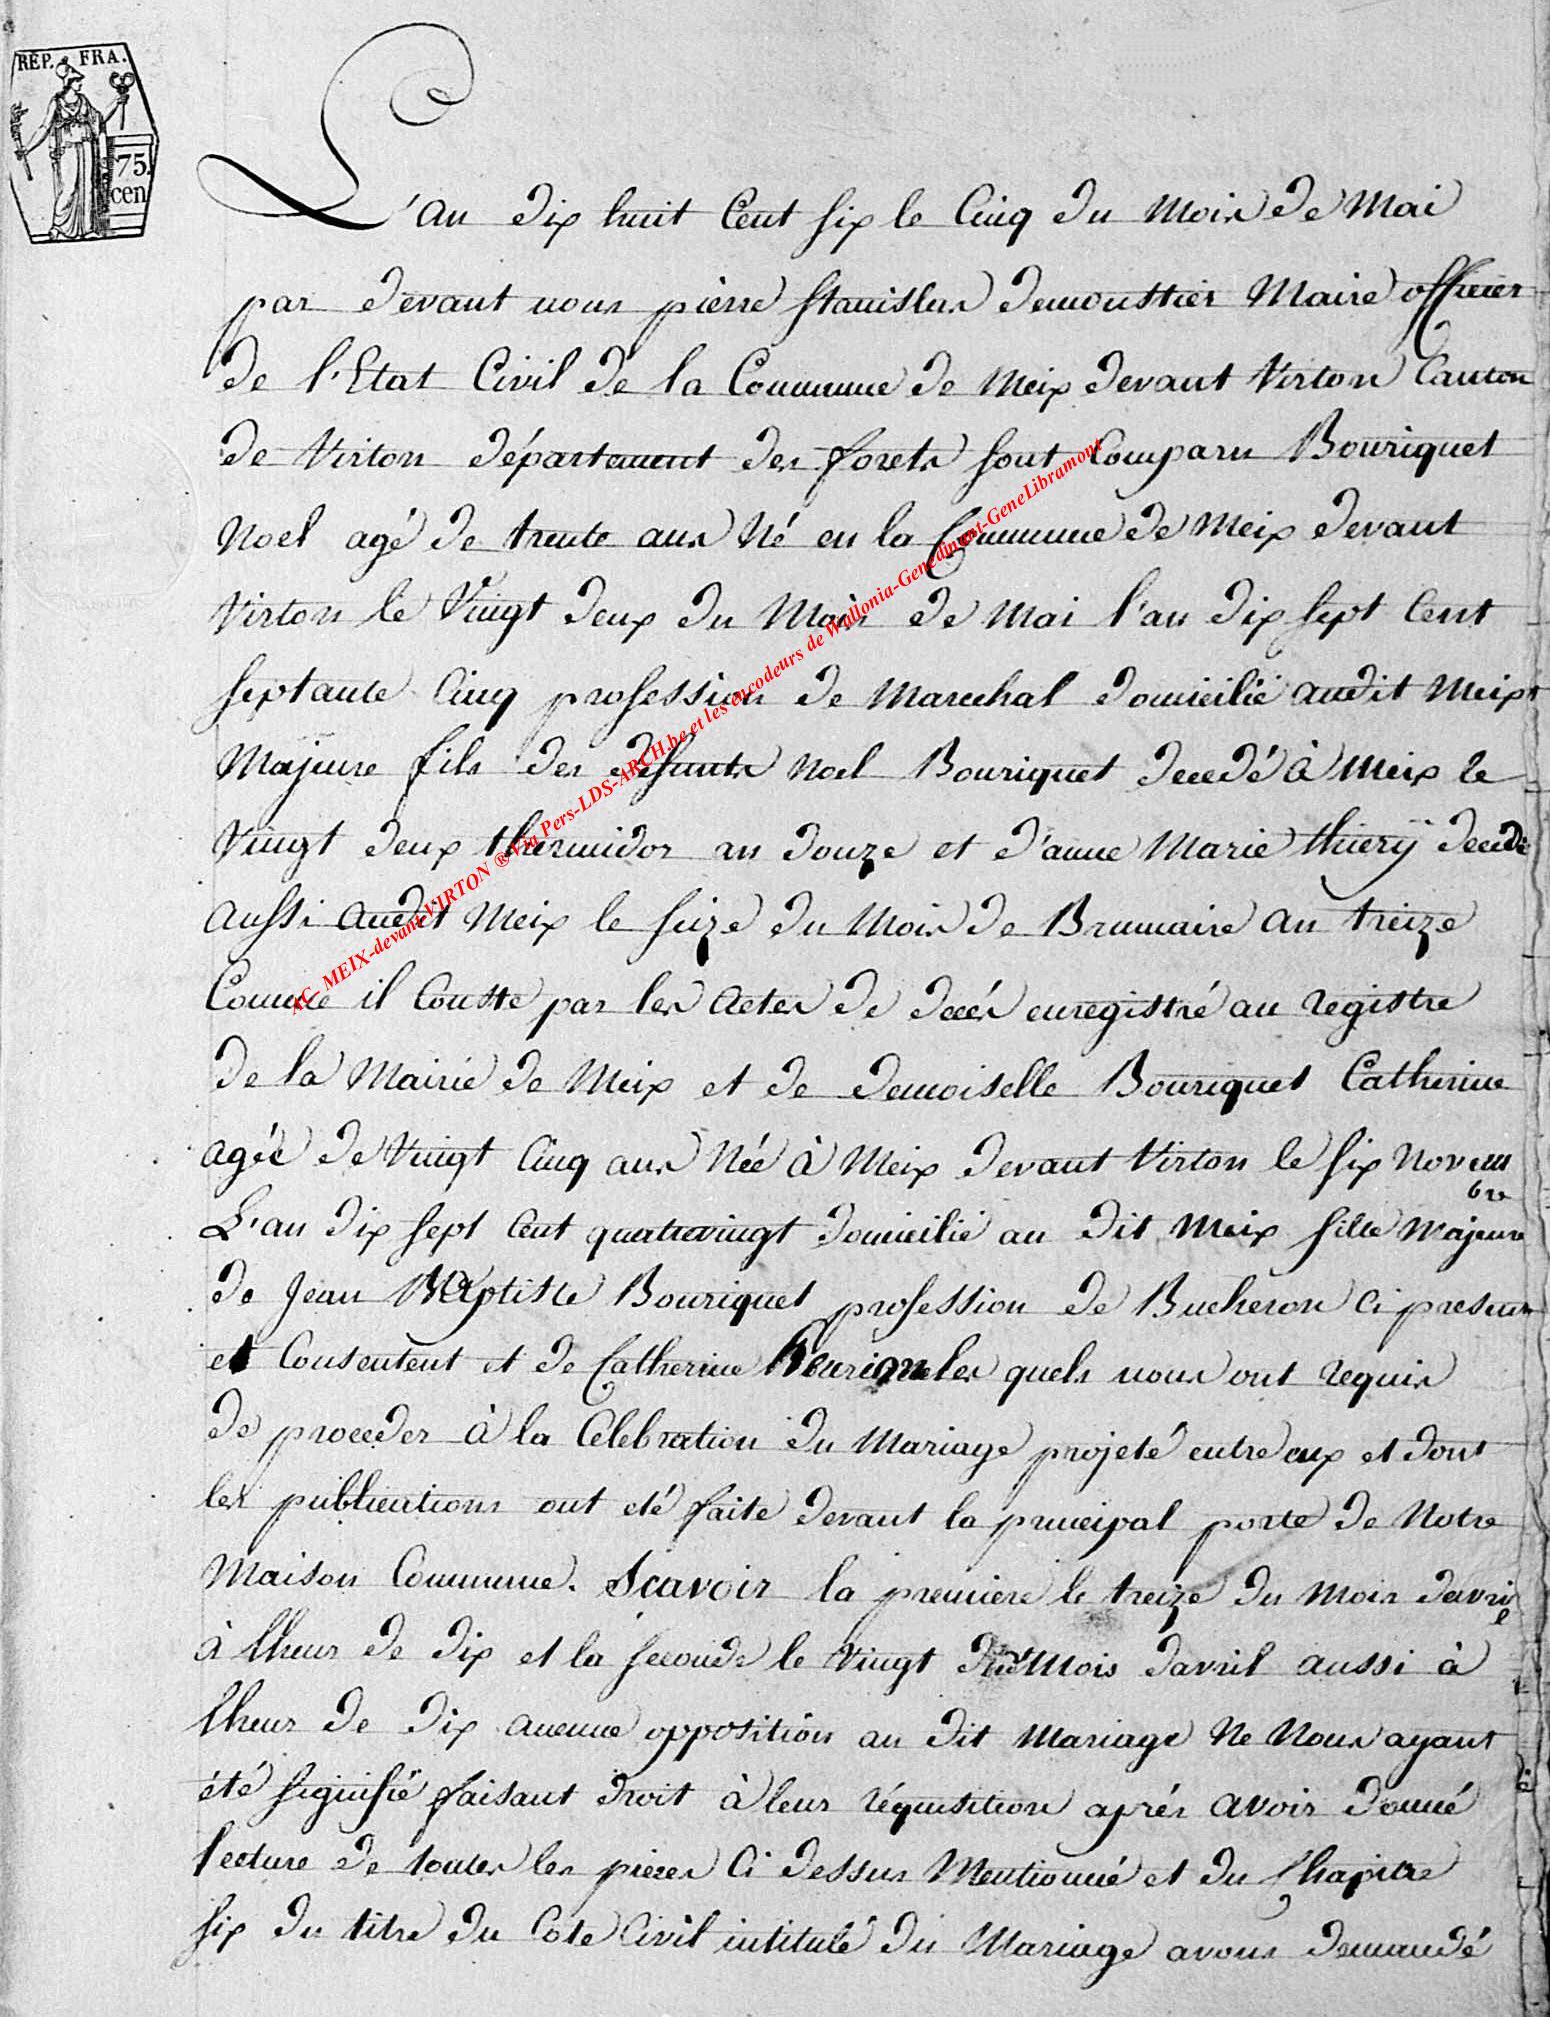 RÉP. FRA.
75.
cen
L'an dix huit Cent six le Cinq du Mois de Mai
par devant nous pierre stanislas demoustier Maire officier
de l'Etat Civil de la Commune de Meix devant Virton Canton
de Virton département des forets sont Comparu Bouriquet
Noel agé de trente ans Né en la Commune de Meix devant
Virton le Vingt deux du Mois de Mai l'an dix sept Cent
septante Cinq profession de Marechal domicilié audit Meix
Majeure fils des defunts Noel Bouriquet decedé à Meix le
Vingt deux thermidor an douze et d'anne Marie thierÿ decedé
aussi audit Meix le seize du Mois de Brumaire an treize
Comme il Conste par les actes de decés enregistré au registre
de la Mairie de Meix et de demoiselle Bouriquet Catherine
agée de Vingt Cinq ans Née à Meix devant Virton le six Novem
bre
L'an dix sept Cent quatrevingt domicilié au dit Meix fille Majeure
de Jean Baptiste Bouriquet profession de Bucheron Ci present
et Consentent et de Catherine les quels nous ont requis
de proceder à la Celebration du Mariage projeté entre eux et dont
les publications ont eté faite devant la principal porte de Notre
Maison Commune. Scavoir la premiere le treize du Mois davri
l
à lheur de dix et la seconde le Vingt du Mois davril aussi à
lheur de dix aucune opposition au dit Mariage Ne Nous ayant
été signifié faisant droit à leur réquisition aprés avoir donné
lecture de toutes les pieces Ci dessus Mentionné et du Chapitre
six du titre du Code Civil intitulé du Mariage avons demandé
AC- MEIX-devant-VIRTON ® Via Pers-LDS-ARCH.be et les encodeurs de Wallonia-Genedinant-GeneLibramont